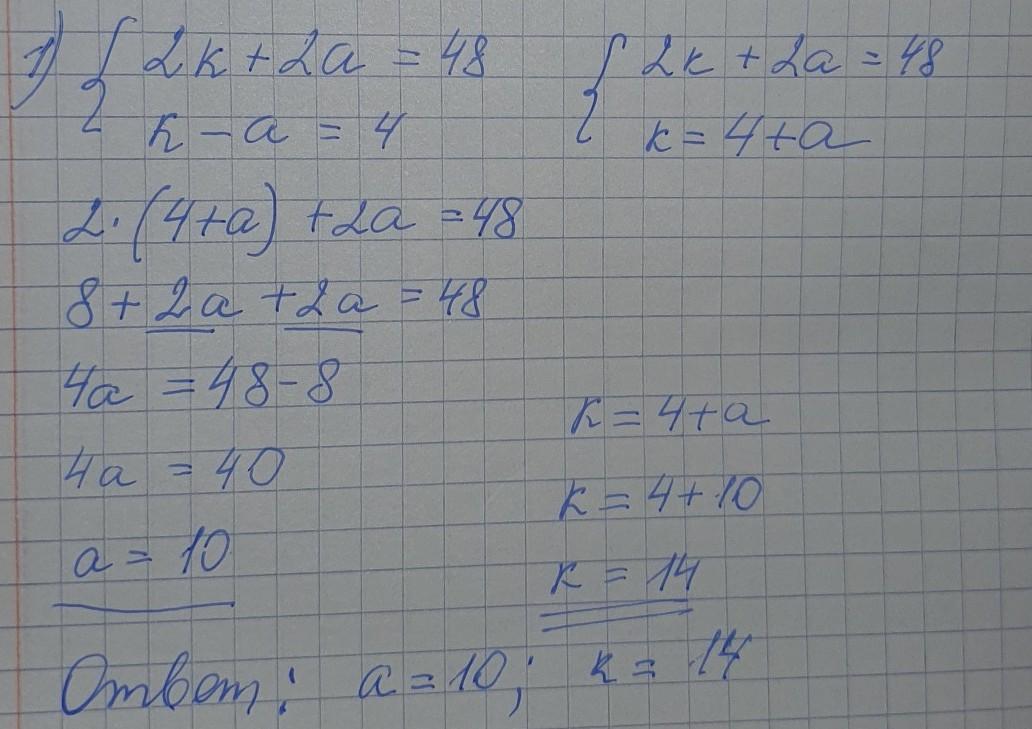 1) { 2k + 2a = 48 { 2k + 2a = 48
k - a = 4 k = 4 + a
2 · (4 + a) + 2a = 48
8 + 2a + 2a = 48
4a = 48 - 8
k = 4 + a
4a = 40
k = 4 + 10
a = 10
k = 14
Ответ: a = 10; k = 14